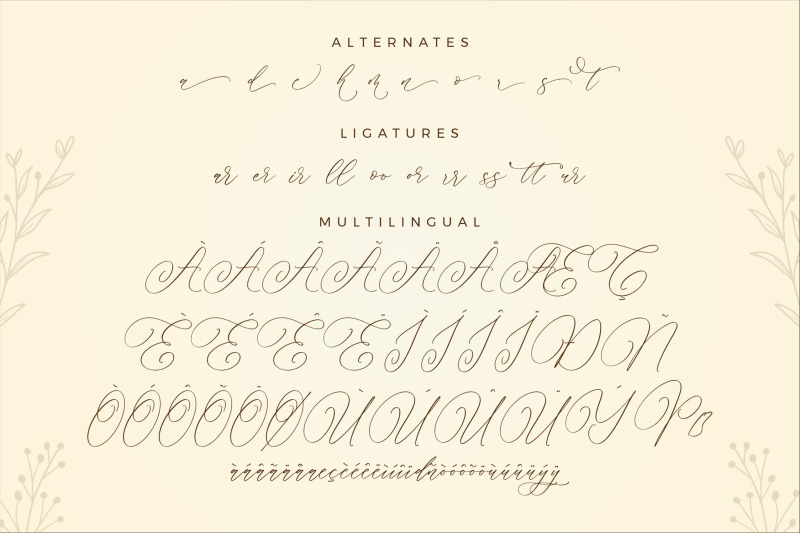 ALTERNATES
a d e h m n o r s t
LIGATURES
ar er ir ll oo or rr ss tt ur
MULTILINGUAL
À Á Â Ã Ä Å Æ Ç
È É Ê Ë Ì Í Î Ï Ð Ñ
Ò Ó Ô Õ Ö Ø Ù Ú Û Ü Ý Þ
àáâãäåæçèéêëìíîïðñòóôõöùúûüýÿ